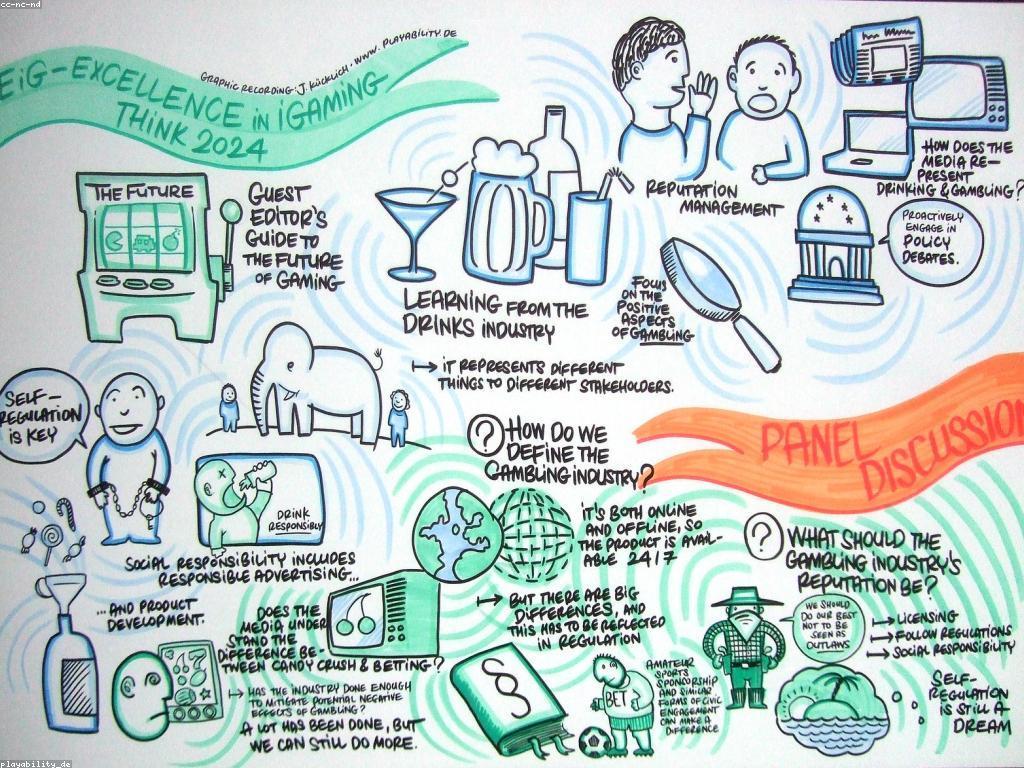 cc-nc-nd
GRAPHIC RECORDING: J. KÜCKLICH • WWW.PLAYABILITY.DE
EiG-EXCELLENCE in iGAMING
THINK 2024
THE FUTURE
GUEST
EDITOR'S
GUIDE TO
THE FUTURE
OF GAMING
LEARNING FROM THE
DRINKS INDUSTRY
REPUTATION
MANAGEMENT
HOW DOES THE
MEDIA RE-
PRESENT
DRINKING & GAMBLING?
PROACTIVELY
ENGAGE IN
POLICY
DEBATES.
FOCUS
ON THE
POSITIVE
ASPECTS
OF GAMBLING
IT REPRESENTS DIFFERENT
THINGS TO DIFFERENT STAKEHOLDERS.
SELF-
REGULATION
IS KEY
DRINK
RESPONSIBLY
SOCIAL RESPONSIBILITY INCLUDES
RESPONSIBLE ADVERTISING...
...AND PRODUCT
DEVELOPMENT.
DOES THE
MEDIA UNDER
STAND THE
DIFFERENCE BE-
TWEEN CANDY CRUSH & BETTING?
HAS THE INDUSTRY DONE ENOUGH
TO MITIGATE POTENTIAL NEGATIVE
EFFECTS OF GAMBLING?
A LOT HAS BEEN DONE, BUT
WE CAN STILL DO MORE.
PANEL
DISCUSSION
? HOW DO WE
DEFINE THE
GAMBLING INDUSTRY?
IT'S BOTH ONLINE
AND OFFLINE, SO
THE PRODUCT IS AVAIL-
ABLE 24/7
BUT THERE ARE BIG
DIFFERENCES, AND
THIS HAS TO BE REFLECTED
IN REGULATION
§
BET
AMATEUR
SPORTS
SPONSORSHIP
AND SIMILAR
FORMS OF CIVIC
ENGAGEMENT
CAN MAKE A
DIFFERENCE
? WHAT SHOULD THE
GAMBLING INDUSTRY'S
REPUTATION BE?
WE SHOULD
DO OUR BEST
NOT TO BE
SEEN AS
OUTLAWS
LICENSING
FOLLOW REGULATIONS
SOCIAL RESPONSIBILITY
SELF-
REGULATION
IS STILL A
DREAM
playability_de